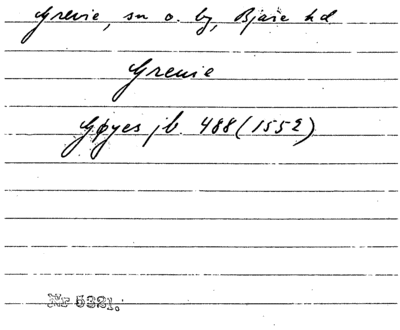 Grevie, sn o. by, Bjäre hd
Grevie
Gøyes jb. 488 (1552)
Nr 5321.